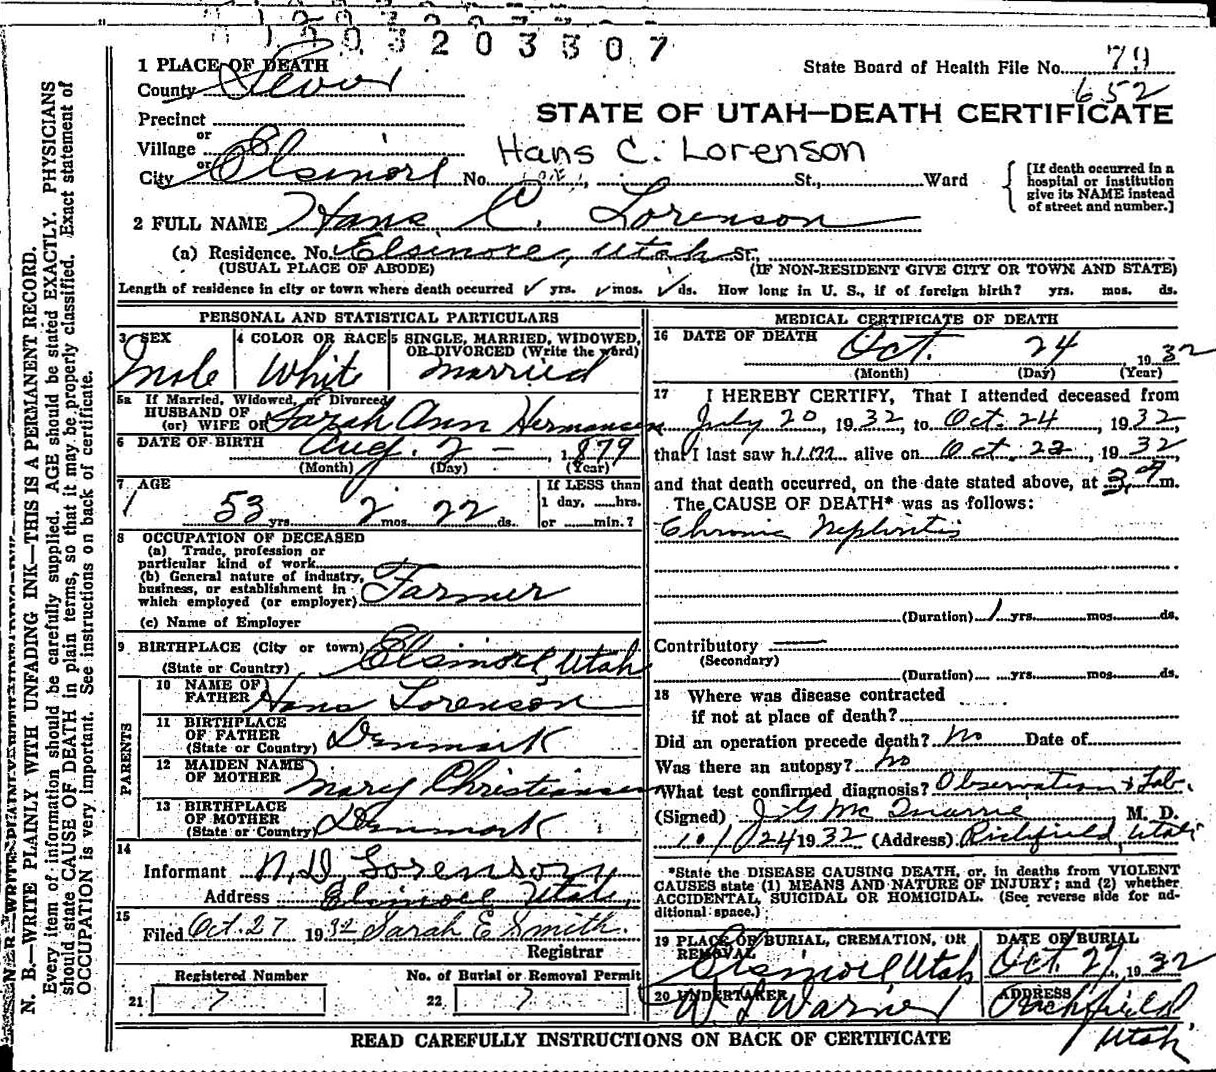 0 1 2 0 3 2 0 3 3 0 7
1 PLACE OF DEATH
State Board of Health File No. 79
652
County Sevier
STATE OF UTAH—DEATH CERTIFICATE
Precinct
or
Village
Hans C. Lorenson
or
City Elsinore No. St., Ward
[If death occurred in a hospital or institution give its NAME instead of street and number.]
2 FULL NAME Hans C. Lorenson
(a) Residence. No. Elsinore, Utah St.,
(USUAL PLACE OF ABODE) (IF NON-RESIDENT GIVE CITY OR TOWN AND STATE)
Length of residence in city or town where death occurred ✓ yrs. ✓ mos. ✓ ds. How long in U. S., if of foreign birth? yrs. mos. ds.
PERSONAL AND STATISTICAL PARTICULARS
3 SEX
Male
4 COLOR OR RACE
White
5 SINGLE, MARRIED, WIDOWED, OR DIVORCED (Write the word)
Married
5a If Married, Widowed, or Divorced
HUSBAND OF
(or) WIFE OF Sarah Ann Hermansen
6 DATE OF BIRTH Aug. 2 - 1879
(Month) (Day) (Year)
7 AGE
53 yrs. 2 mos. 22 ds.
If LESS than
1 day, ......hrs.
or ......min.?
8 OCCUPATION OF DECEASED
(a) Trade, profession or
particular kind of work
(b) General nature of industry,
business, or establishment in
which employed (or employer) Farmer
(c) Name of Employer
9 BIRTHPLACE (City or town)
(State or Country) Elsinore, Utah
PARENTS
10 NAME OF
FATHER Hans Lorenson
11 BIRTHPLACE
OF FATHER
(State or Country) Denmark
12 MAIDEN NAME
OF MOTHER Mary Christiansen
13 BIRTHPLACE
OF MOTHER
(State or Country) Denmark
14
Informant N. D. Lorenson
Address Elsinore Utah.
15
Filed Oct. 27 1932 Sarah E Smith.
Registrar
Registered Number
21 7
No. of Burial or Removal Permit
22 7
MEDICAL CERTIFICATE OF DEATH
16 DATE OF DEATH Oct. 24 1932
(Month) (Day) (Year)
17 I HEREBY CERTIFY, That I attended deceased from
July 20, 1932, to Oct. 24, 1932,
that I last saw him alive on Oct. 23, 1932
and that death occurred, on the date stated above, at m.
The CAUSE OF DEATH* was as follows:
Chronic Nephritis
(Duration) 1 yrs. mos. ds.
Contributory
(Secondary)
(Duration) yrs. mos. ds.
18 Where was disease contracted
if not at place of death?
Did an operation precede death? No Date of
Was there an autopsy? No
What test confirmed diagnosis? Observation & Lab.
(Signed) M. D.
10/24 1932 (Address) Richfield, Utah
*State the DISEASE CAUSING DEATH, or, in deaths from VIOLENT
CAUSES state (1) MEANS AND NATURE OF INJURY; and (2) whether
ACCIDENTAL, SUICIDAL OR HOMICIDAL. (See reverse side for ad-
ditional space.)
19 PLACE OF BURIAL, CREMATION, OR
REMOVAL
Elsinore Utah
DATE OF BURIAL
Oct. 27, 1932
20 UNDERTAKER
W L Warner
ADDRESS
Richfield
Utah
READ CAREFULLY INSTRUCTIONS ON BACK OF CERTIFICATE
N. B.—WRITE PLAINLY WITH UNFADING INK—THIS IS A PERMANENT RECORD.
Every item of information should be carefully supplied. AGE should be stated EXACTLY. PHYSICIANS
should state CAUSE OF DEATH in plain terms, so that it may be properly classified. Exact statement of
OCCUPATION is very important. See instructions on back of certificate.